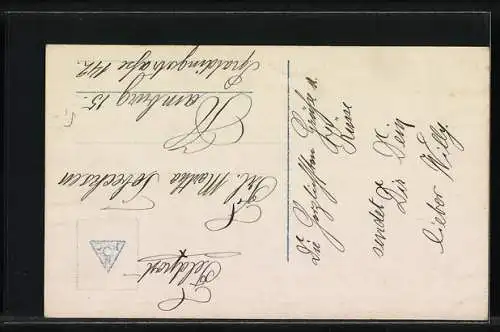 Feldpost
Frl. Martha Tobecksen
Hamburg 15.
Spaldingstraße 142.
Die herzlichsten Grüße u.
Küsse
sendet Dir
Dein
lieber Willy.